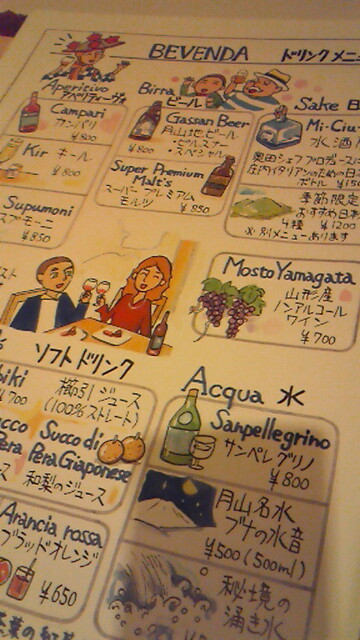 BEVENDA ドリンクメニ
Aperitivo
アペリティーヴォ
Campari
カンパリ
¥800
Kir キール
¥800
Supumoni
スプモーニ
¥850
Birra
ビール
Gassan Beer
月山地ビール
・ピルスナー
・スペシャル
¥800
Super Premium
Malt's
スーパープレミアム
モルツ
¥850
Sake
Mi-Ciu
水酒
奥田シェフプロデュース
庄内イタリアンのための日
ボトル
季節限定
おすすめ日本
4種 ¥1200
※別メニューあります
Mosto Yamagata
山形産
ノンアルコール
ワイン
¥700
ソフトドリンク
biki
¥700
櫛引ジュース
(100%ストレート)
Succo di
Pera Giaponese
和梨のジュース
Arancia rossa
ブラッドオレンジ
¥650
Acqua 水
Sanpellegrino
サンペレグリノ
¥800
月山名水
ブナの水音
¥500(500ml)
秘境の
湧き水